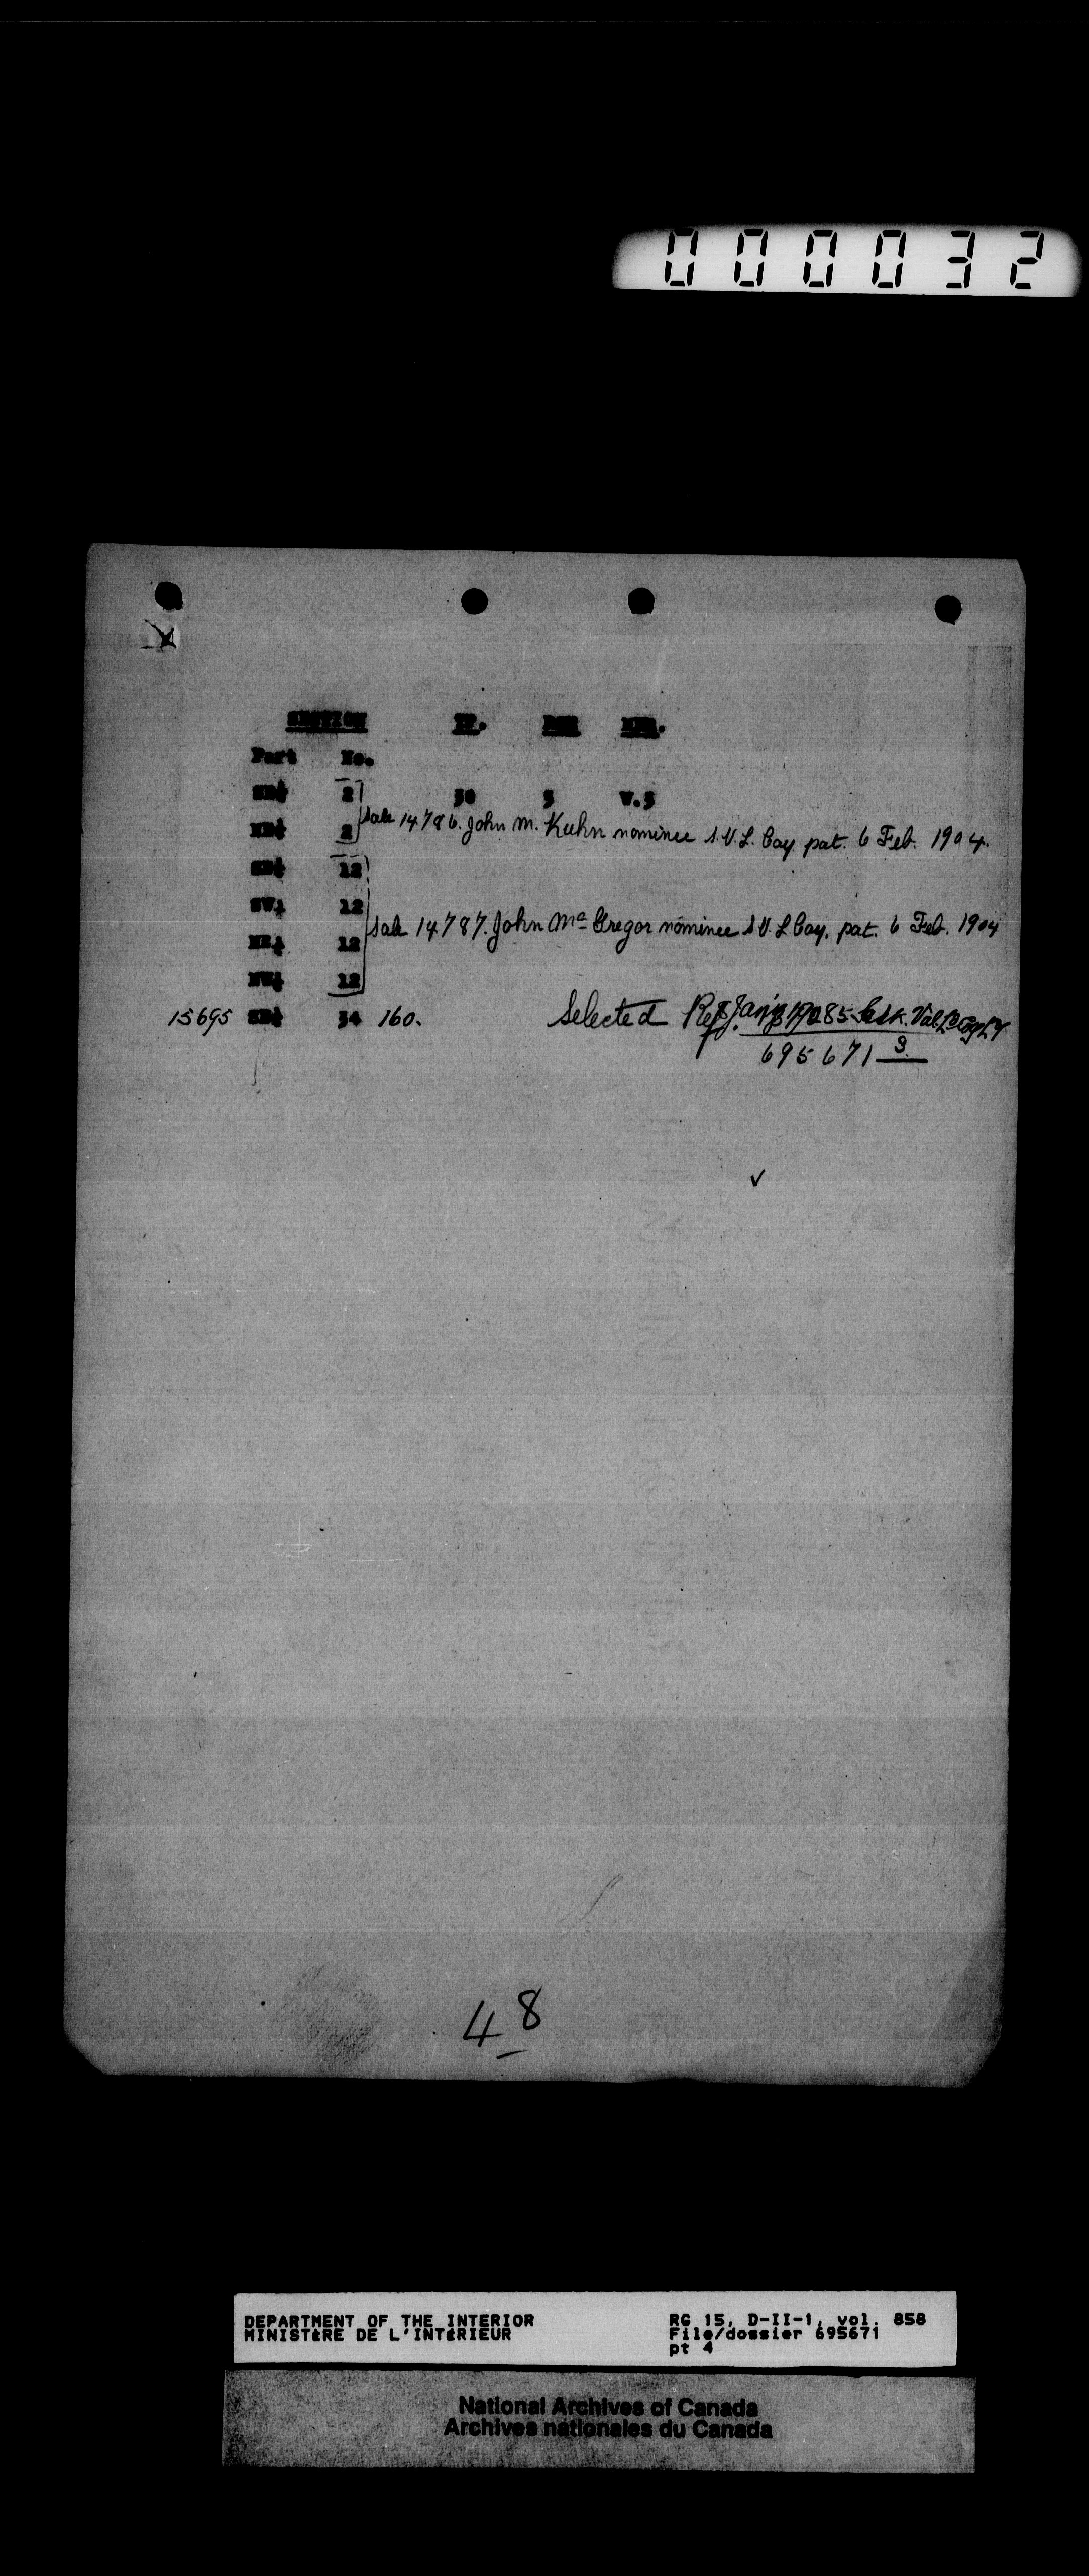 000032
SECTION TP. RGE MER.
Part No.
SE¼ 2 30 3 W.3
NE¼ 2 Sale 14786. John M. Kuhn nominee S.V.L. Coy. pat. 6 Feb. 1904.
SE¼ 12
SW¼ 12
NE¼ 12 Sale 14787. John McGregor nominee S.V.L Coy. pat. 6 Feb. 1904
NW¼ 12
15695 SE¼ 34 160. Selected Ref
695671 3
✓
48
DEPARTMENT OF THE INTERIOR
MINISTÈRE DE L'INTÉRIEUR
RG 15, D-II-1, vol. 858
File/dossier 695671
pt 4
National Archives of Canada
Archives nationales du Canada